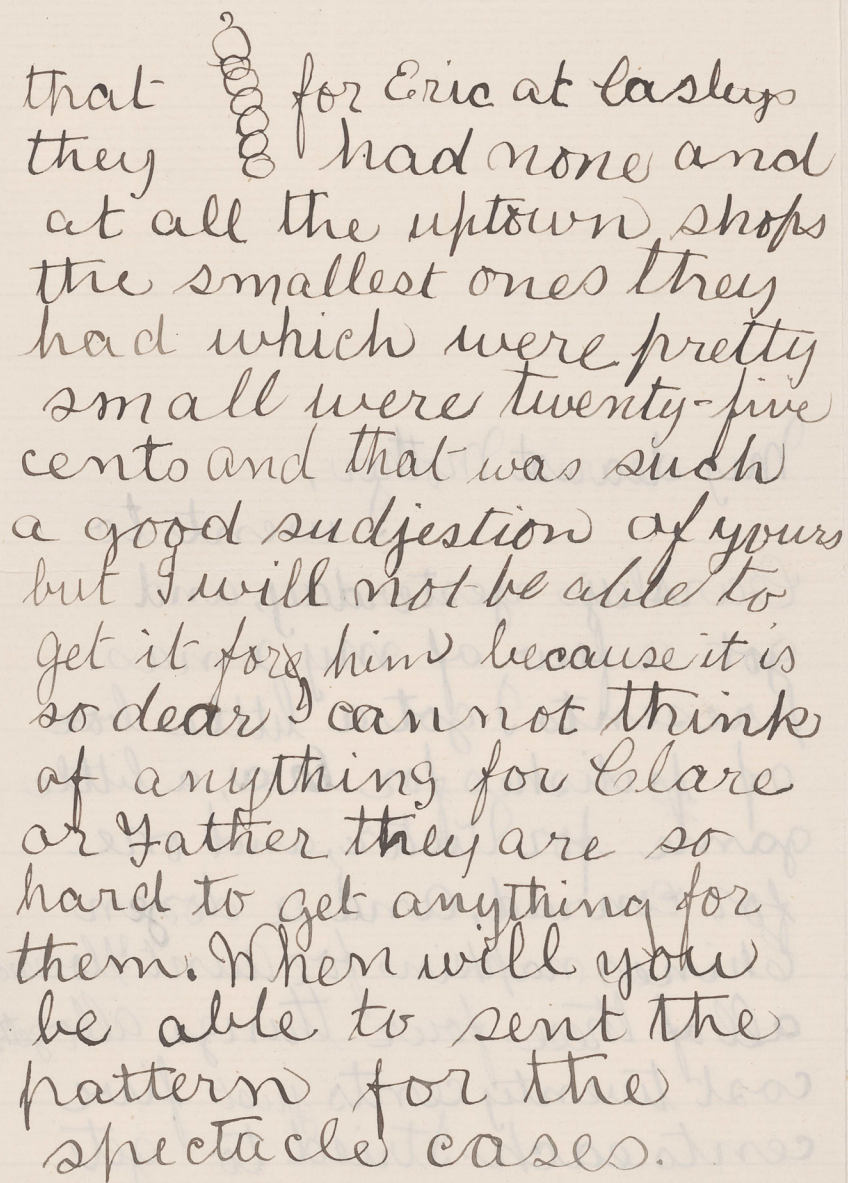 that for Eric at Casleys
they had none and
at all the uptown shops
the smallest ones they
had which were pretty
small were twenty-five
cents and that was such
a good sudjestion of yours
but I will not be able to
get it for him because it is
so dear I cannot think
of anything for Clare
or Father they are so
hard to get anything for
them. When will you
be able to sent the
pattern for the
spectacle cases.